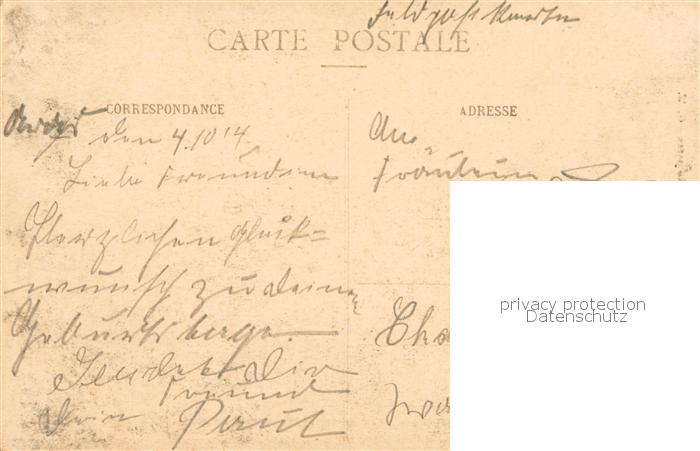 Feldpostkarte
CARTE POSTALE
CORRESPONDANCE
ADRESSE
den 4.10 14.
An
Liebe Freundin
Fräulein
Herzlichen Glück=
wunsch zu deinem
Geburtstage.
Sendet dir
Freund
dein Paul
privacy protection
Datenschutz